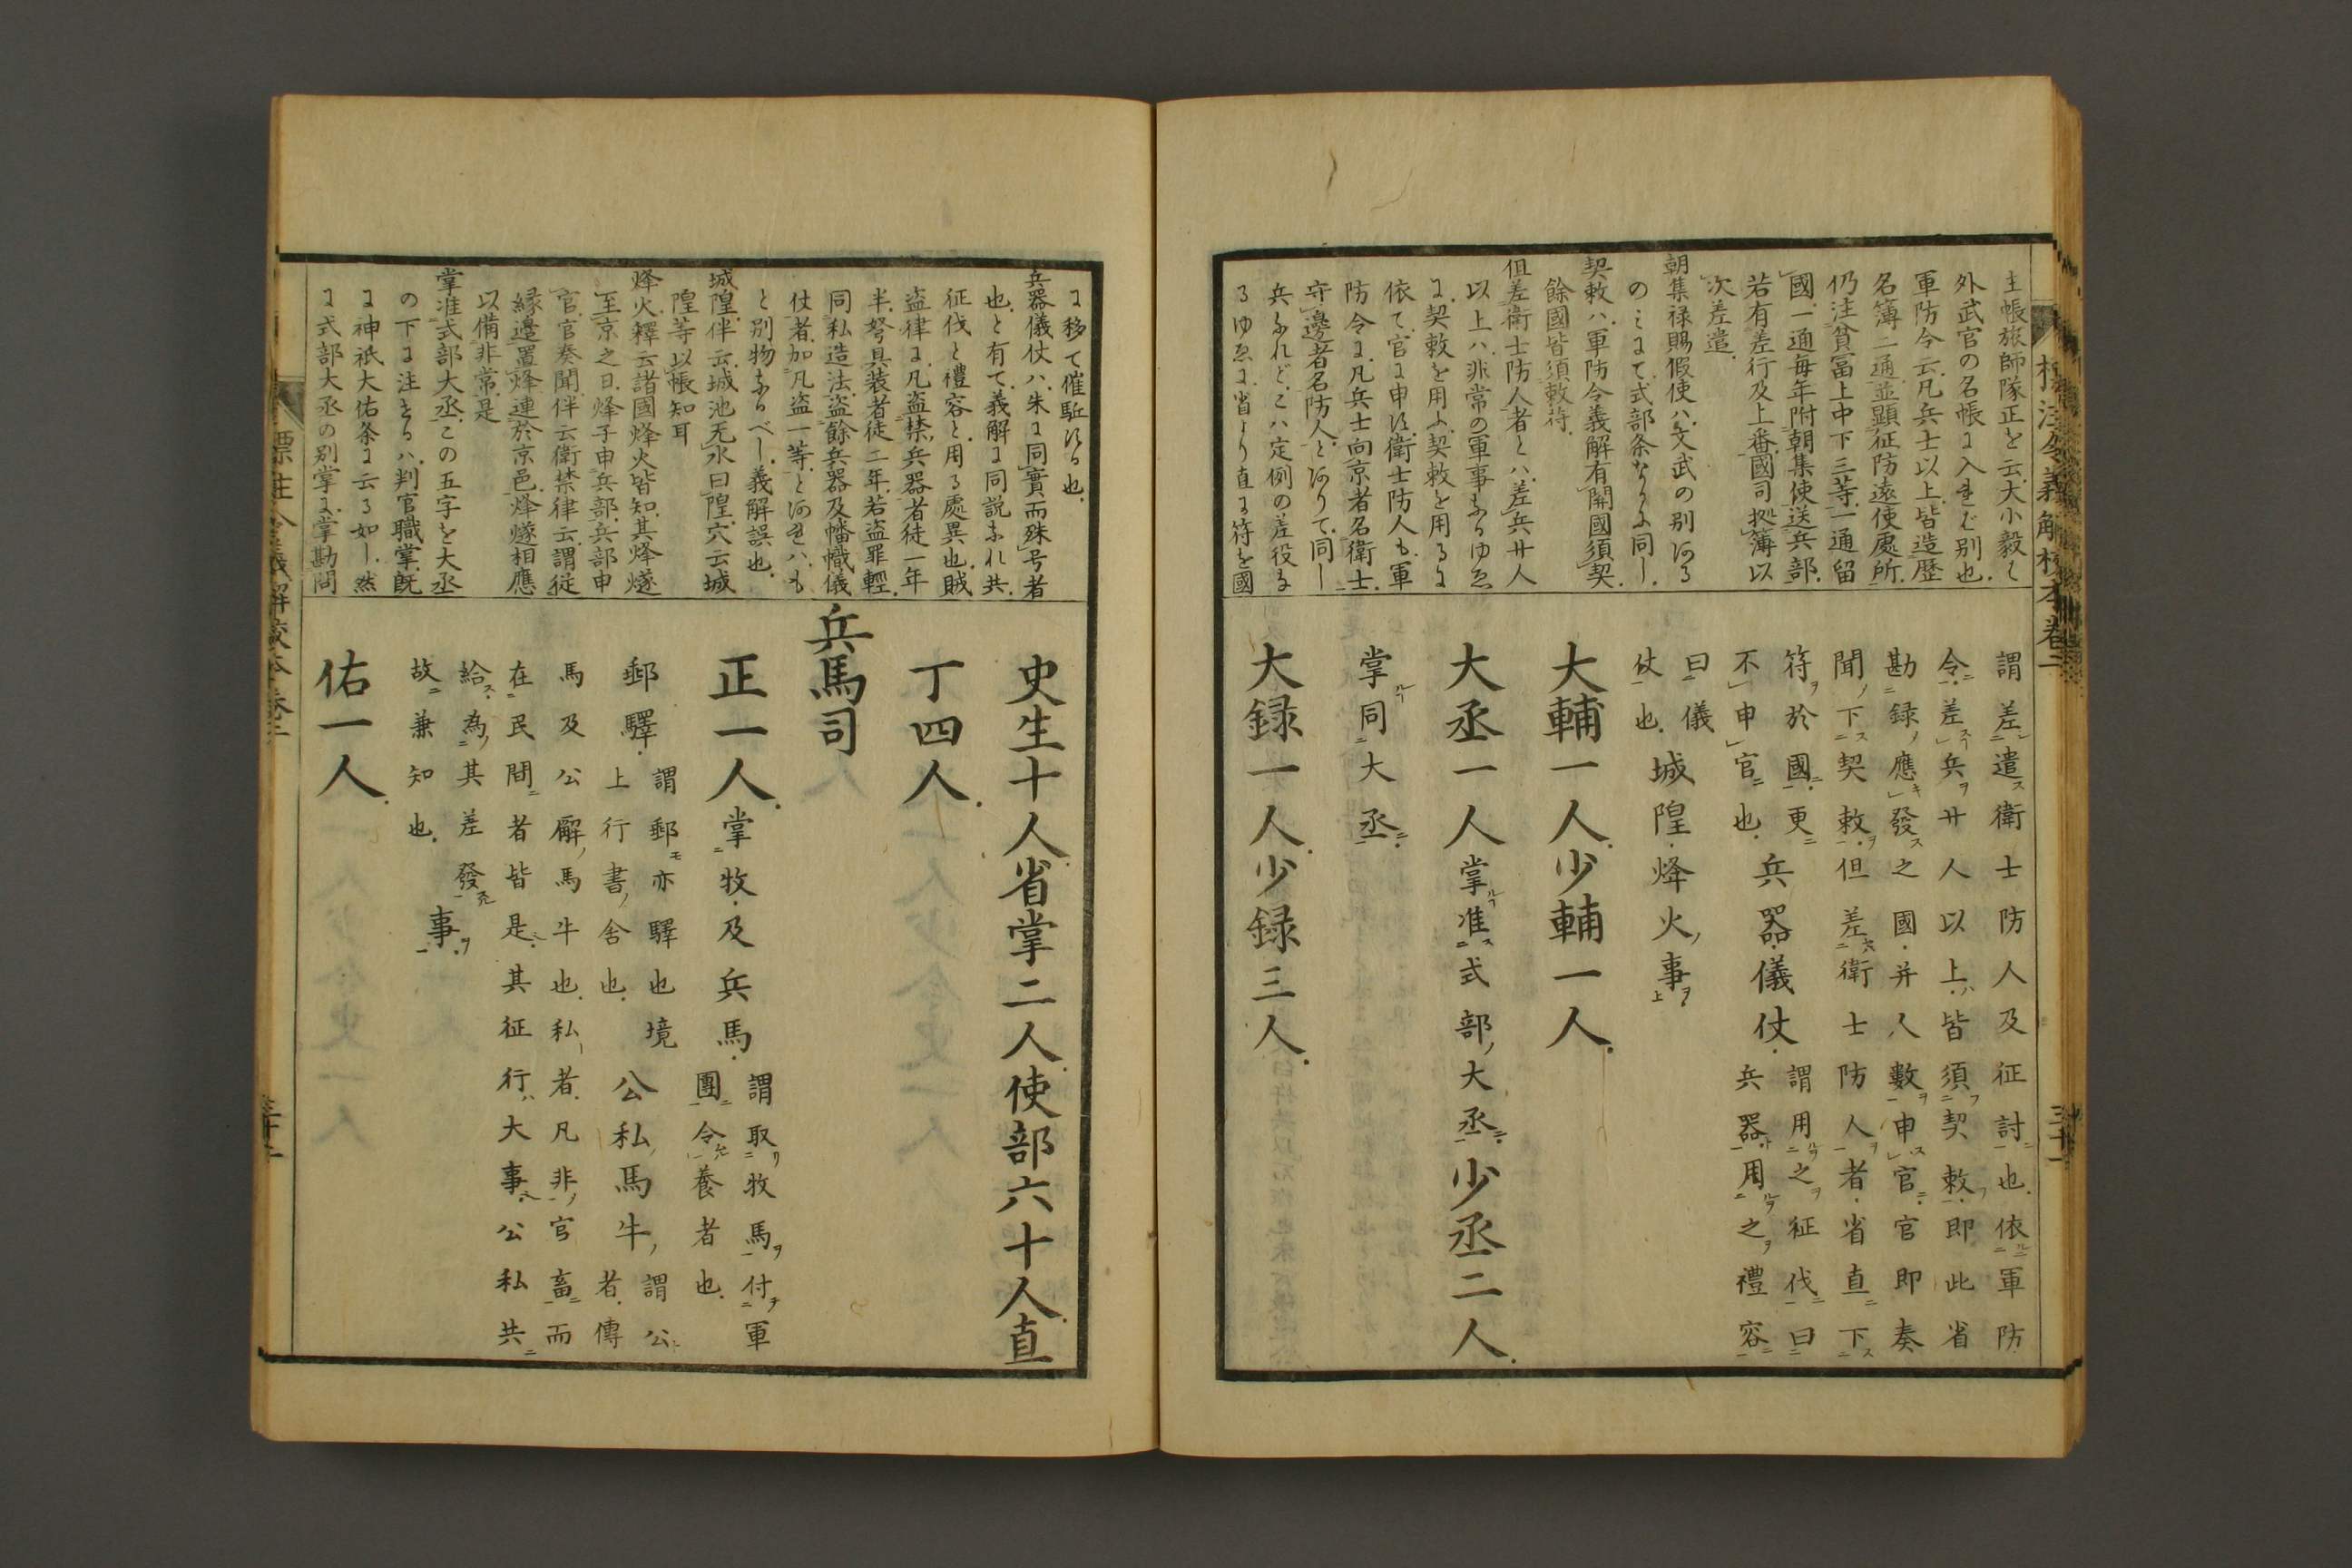 主帳旅師隊正を云大小毅は
外武官の名帳に入まで別也
軍防令云凡兵士以上皆造歴
名簿二通並顕征防遠使處所
仍注貧冨上中下三等一通留
國一通毎年附朝集使送兵部
若有差行及上番國司拠簿以
次差遣
朝集禄賜假使ハ文武の別ある
のミにて式部条なるに同し
契敕ハ軍防令義解有関國須契
餘國皆須敕符
但差衛士防人者とハ差兵廿人
以上ハ非常の軍事なるゆゑ
に契敕を用ふ契敕を用るに
依て官に申は衛士防人も軍
防令に凡兵士向京者名衛士
守邊者名防人とありて同し
兵なれどこハ定例の差役な
るゆゑに省より直に符を國
謂差遣衛士防人及征討也依軍防
令差兵廿人以上皆須契敕即此省
勘録應發之國并人數申官官即奏
聞下契敕但差衛士防人者省直下
符於國更
不申官也
兵器儀仗
謂用之征伐曰
兵器用之禮容
曰儀
仗也
城隍烽火事
大輔一人少輔一人
大丞一人掌准式部大丞少丞二人
掌同大丞
大録一人少録三人
に移て催駈はる也
兵器儀仗ハ朱に同實而殊号者
也と有て義解に同説なれ共
征伐と禮容と用る處異也賊
盗律に凡盗禁兵器者徒一年
半弩具装者徒二年若盗罪輕
同私造法盗餘兵器及幡幟儀
仗者加凡盗一等とあれハも
と別物なるべし義解誤也
城隍伴云城池无水曰隍穴云城
隍等以帳知耳
烽火釋云諸國烽火皆知其烽燧
至京之日烽子申兵部兵部申
官官奏聞伴云衛禁律云謂従
縁邊置烽連於京邑烽燧相應
以備非常是
掌准式部大丞この五字を大丞
の下に注きるハ判官職掌既
に神祇大佑条に云る如し然
に式部大丞の別掌に掌勘問
史生十人省掌二人使部六十人直
丁四人
兵馬司
正一人掌牧及兵馬
謂取牧馬付軍
團令養者也
郵驛
謂郵亦驛也境
上行書舎也
公私馬牛
謂公
者傳
馬及公廨馬牛也私者凡非官畜而
在民間者皆是其征行大事公私共
給為其差發
故兼知也
事
佑一人